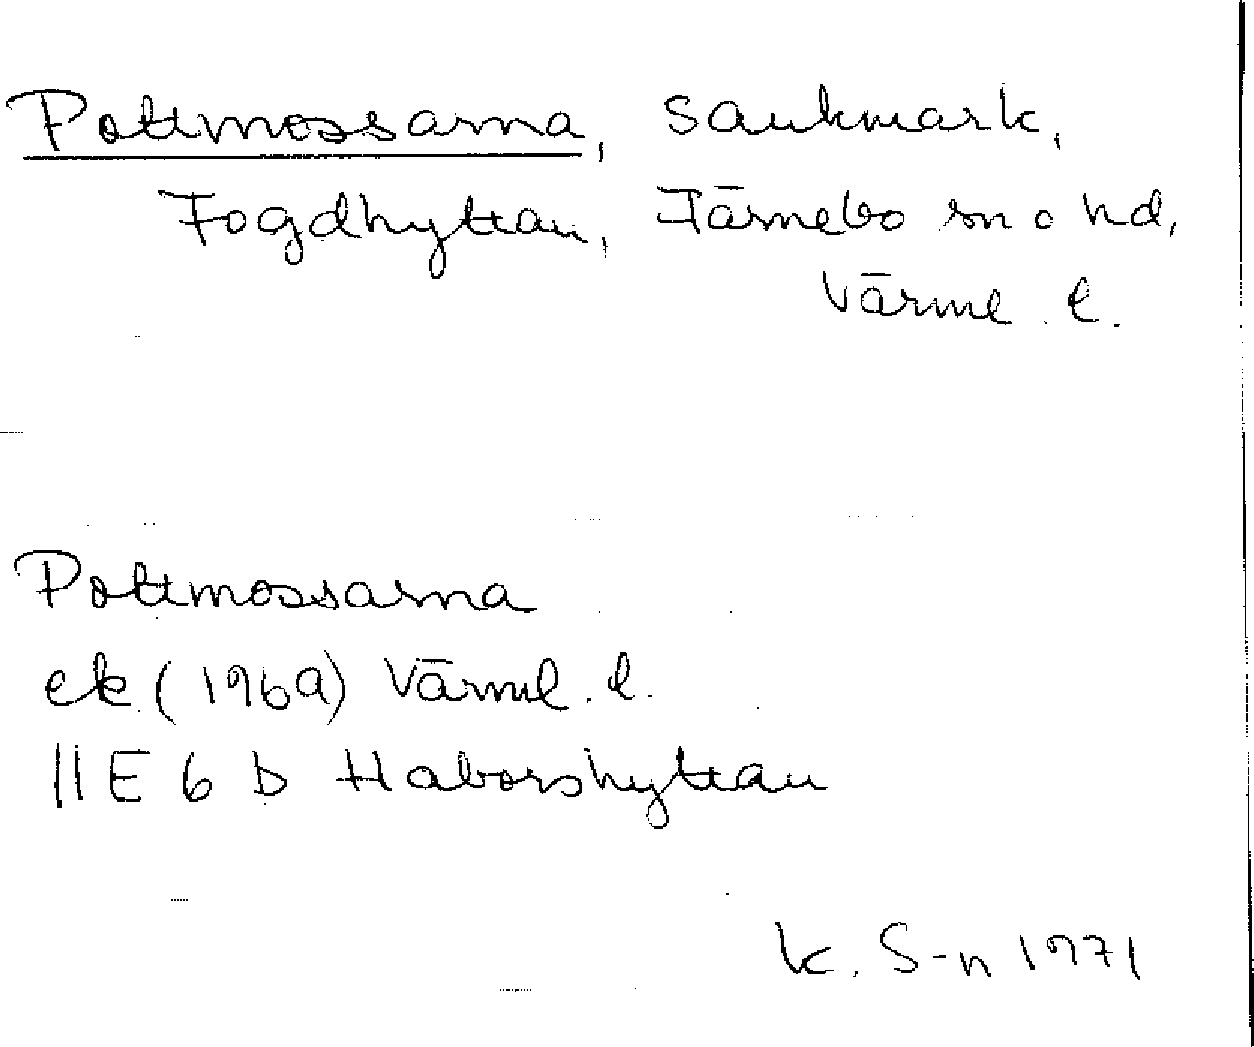 Pottmossarna, sankmark,
Fogdhyttan, Färnebo sn o hd,
Värml. l.
Pottmossarna
ek (1969) Värml. l.
11E 6 b Håborshyttan
K. S-n 1971